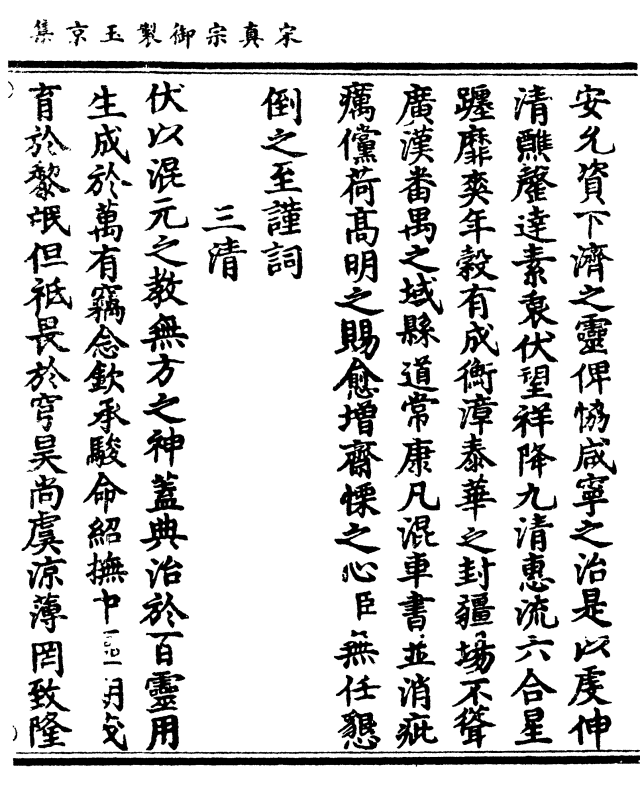 宋真宗御製玉京集
安允資下濟之靈俾恊咸寧之治是以虔伸
清醮罄達素衷伏望祥降九清惠流六合星
躔靡爽年穀有成衡漳泰華之封疆場不聳
廣漢番禺之域縣道常康凡混車書並消疵
癘儻荷髙明之賜愈增齋慄之心臣無任懇
倒之至謹詞
三清
伏以混元之教無方之神蓋典治於百靈用
生成於萬有竊念欽承駿命紹撫中區
育於黎氓但祗畏於穹昊尚虞涼薄罔致隆